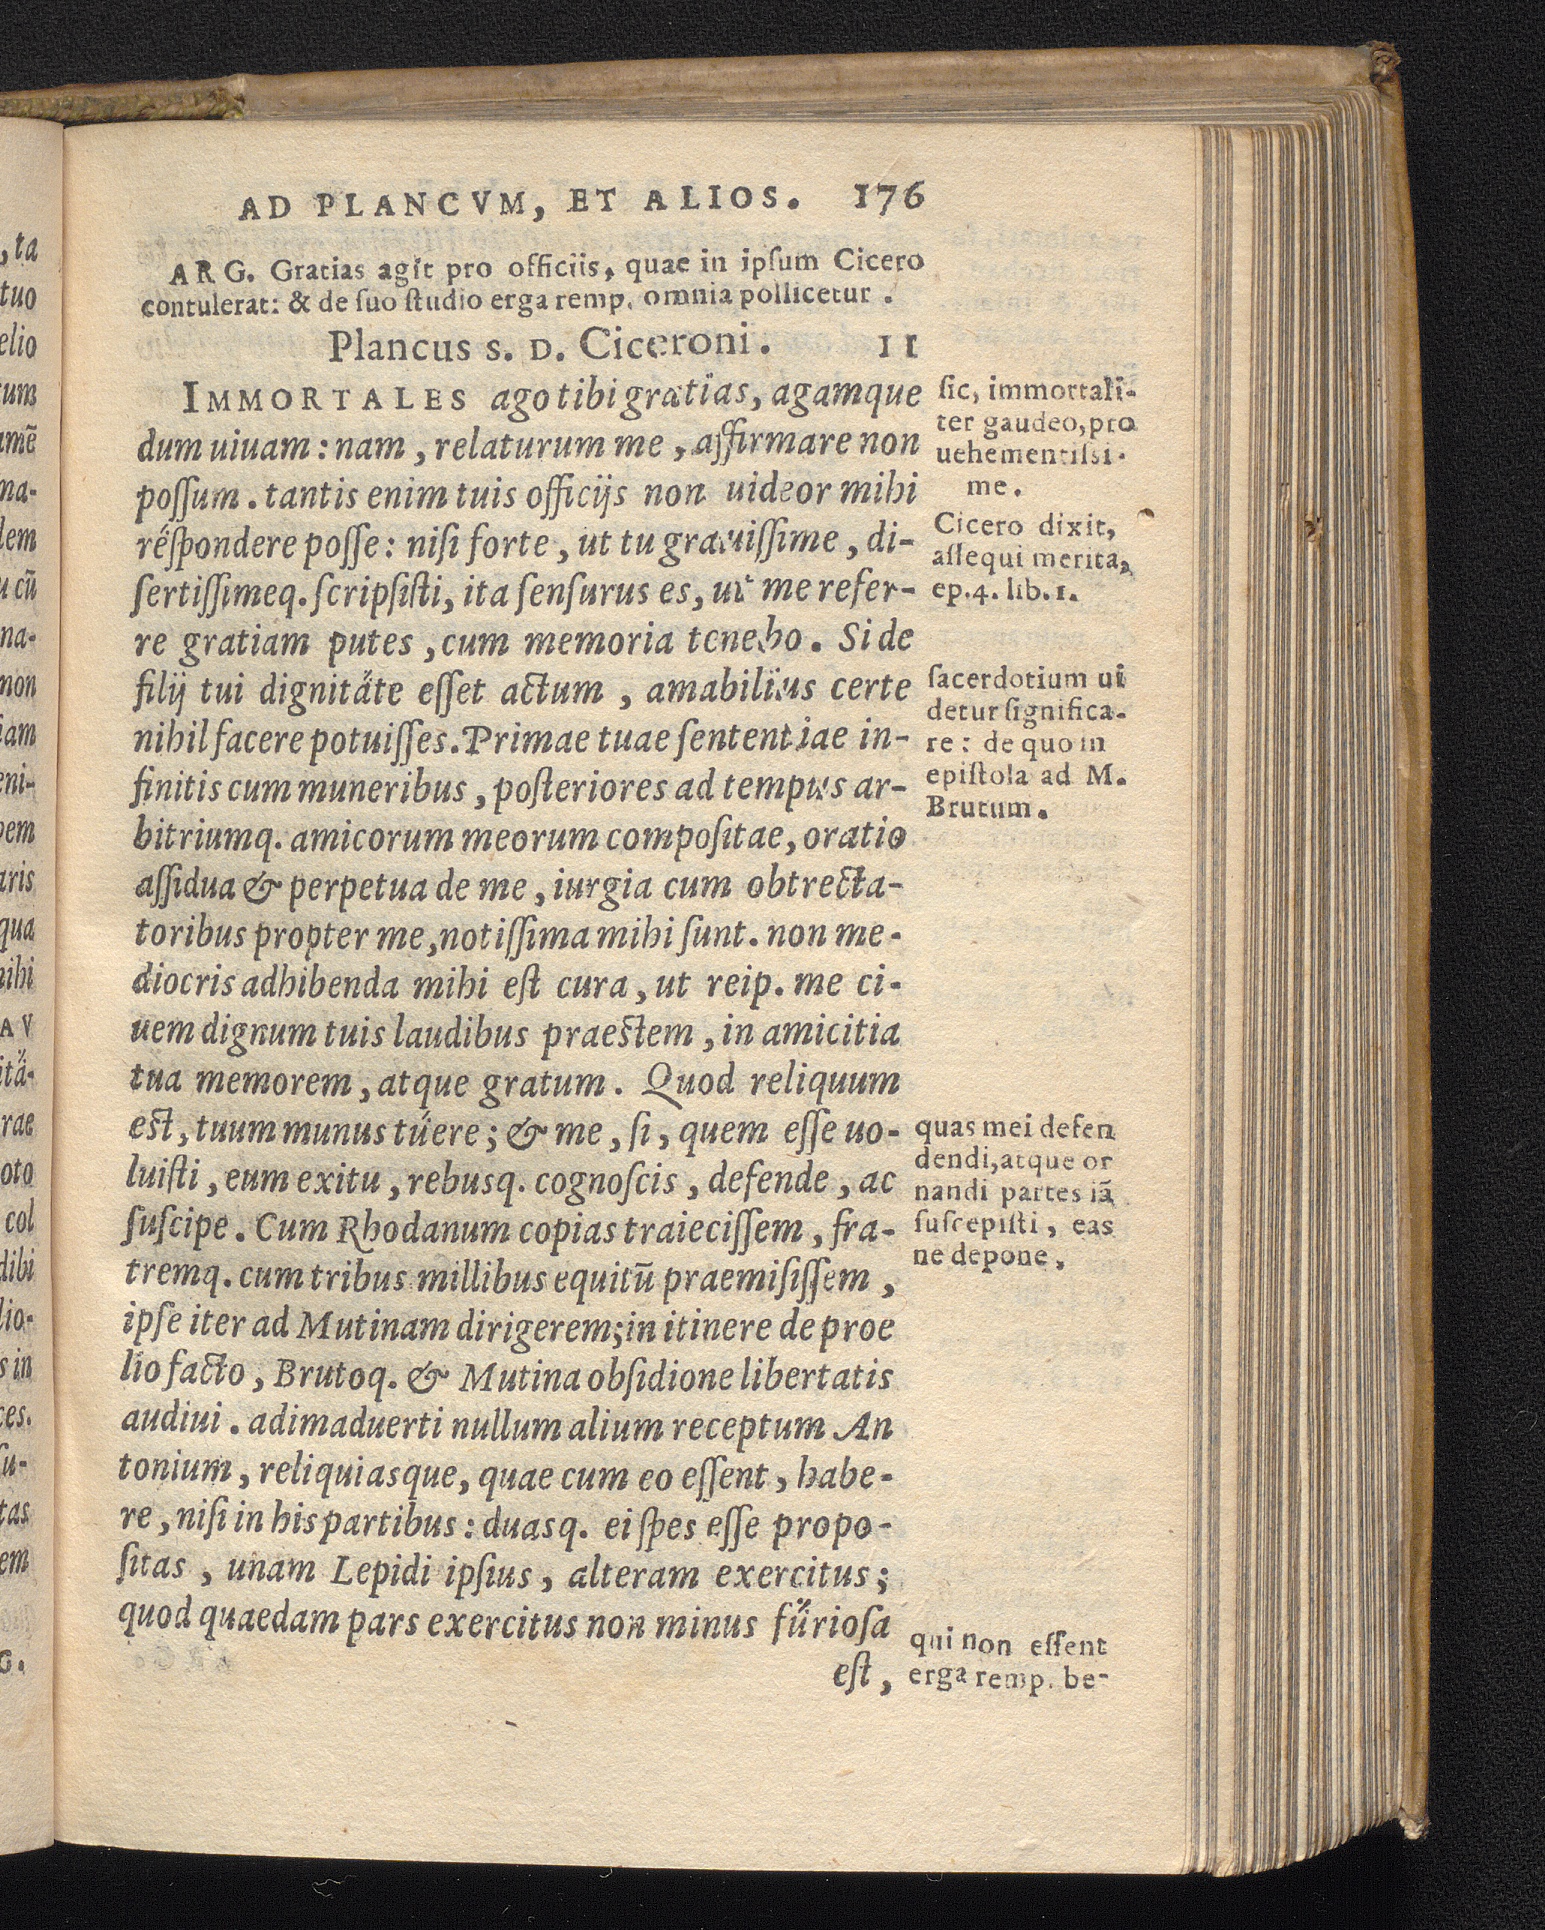 AD PLANCVM, ET ALIOS. 176
ARG. Gratias agit pro officiis, quae in ipſum Cicero
contulerat: & de ſuo ſtudio erga remp. omnia pollicetur.
Plancus s. D. Ciceroni. 11
IMMORTALES ago tibi gratias, agamque
dum uiuam: nam, relaturum me, affirmare non
poſſum. tantis enim tuis officijs non uideor mihi
reſpondere poſſe: niſi forte, ut tu grauiſſime, di-
ſertiſſimeq. ſcripſiſti, ita ſenſurus es, ut me refer-
re gratiam putes, cum memoria tenebo. Si de
filij tui dignitäte eſſet actum, amabilius certe
nihil facere potuiſſes. Primae tuae ſententiae in-
finitis cum muneribus, poſteriores ad tempus ar-
bitriumq. amicorum meorum compoſitae, oratio
aſſidua & perpetua de me, iurgia cum obtrecta-
toribus propter me, notiſſima mihi ſunt. non me-
diocris adhibenda mihi eſt cura, ut reip. me ci-
uem dignum tuis laudibus praeſtem, in amicitia
tua memorem, atque gratum. Quod reliquum
eſt, tuum munus tüere; & me, ſi, quem eſſe uo-
luiſti, eum exitu, rebusq. cognoſcis, defende, ac
ſuſcipe. Cum Rhodanum copias traieciſſem, fra-
tremq. cum tribus millibus equitū praemiſiſſem,
ipſe iter ad Mutinam dirigerem; in itinere de proe
lio facto, Brutoq. & Mutina obſidione libertatis
audiui. adimaduerti nullum alium receptum An
tonium, reliquiasque, quae cum eo eſſent, habe-
re, niſi in his partibus: duasq. ei ſpes eſſe propo-
ſitas, unam Lepidi ipſius, alteram exercitus;
quod quaedam pars exercitus non minus fürioſa
eſt,
ſic, immortali-
ter gaudeo, pro
uehementiſſi-
me.
Cicero dixit,
aſſequi merita,
ep. 4. lib. 1.
ſacerdotium ui
detur ſignifica-
re: de quo in
epiſtola ad M.
Brutum.
quas mei defen
dendi, atque or
nandi partes iã
ſuſcepiſti, eas
ne depone.
qui non eſſent
erga remp. be-
, ta
tuo
elio
tum
na-
lem
u cū
na-
non
eni-
aris
qua
AV
itä-
rae
oto
col
dibi
lio-
s in
ces.
ſu-
tas
em